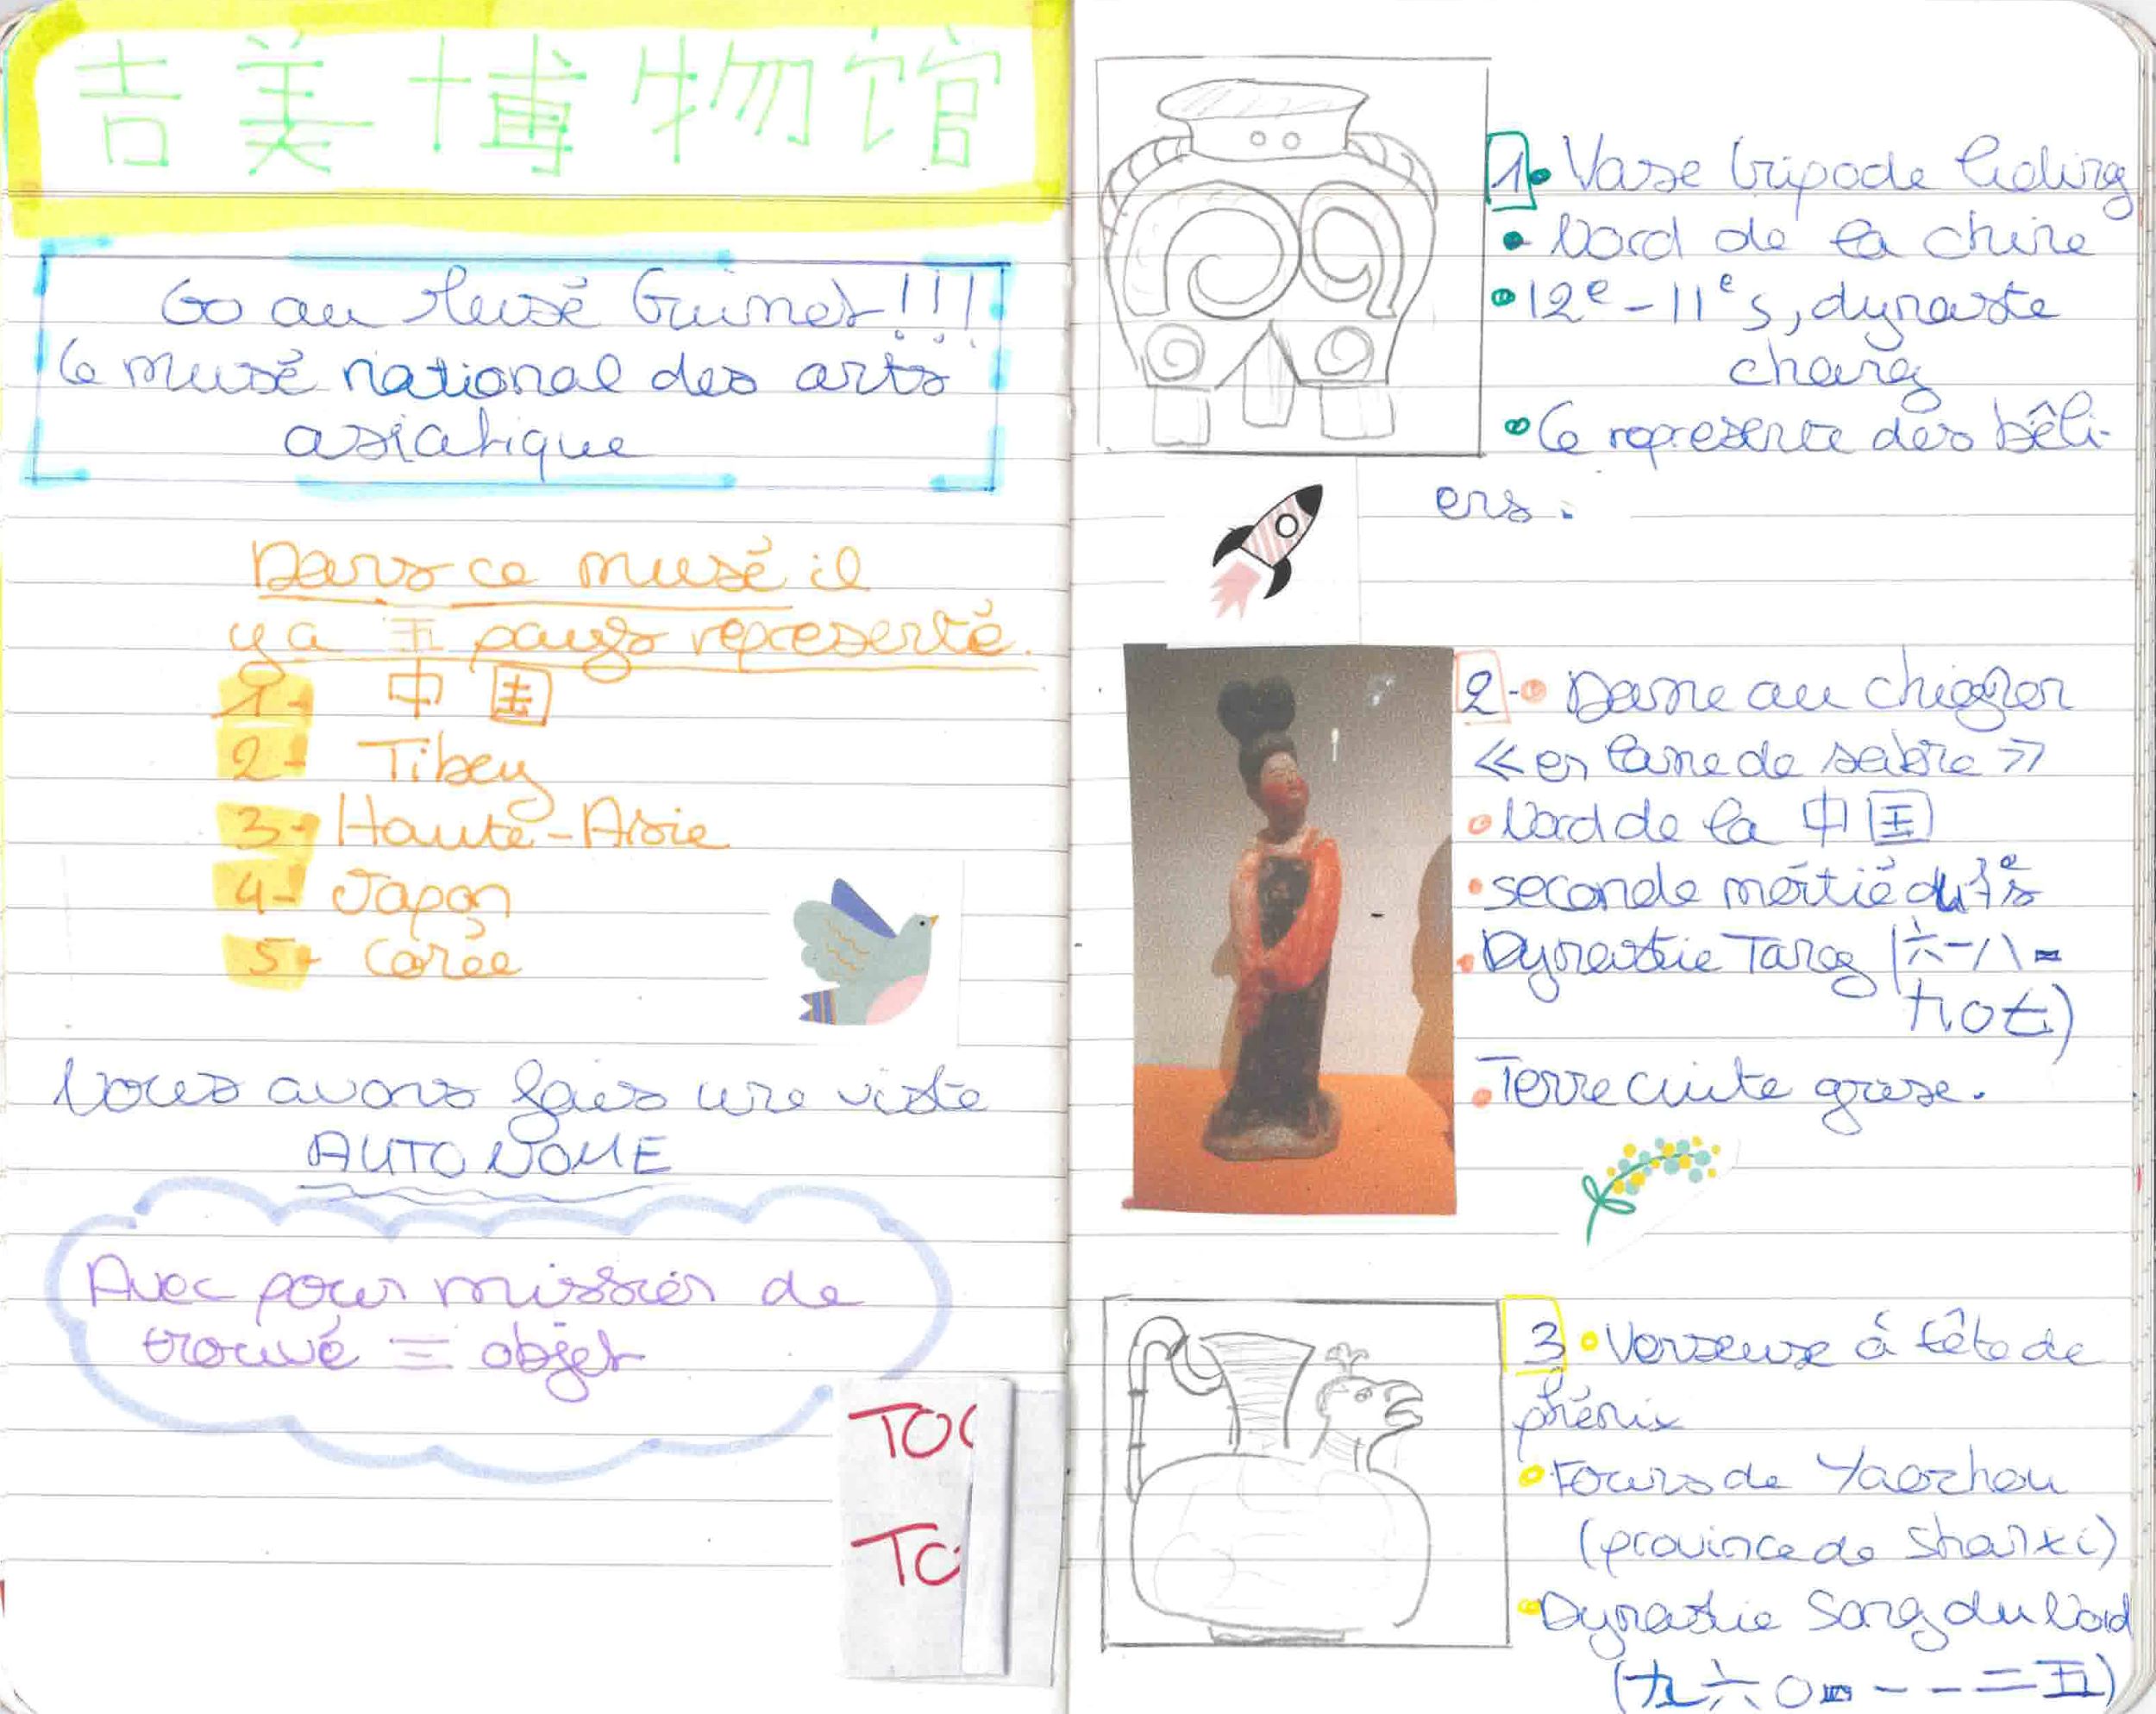 吉美博物馆
Go au Musé Guimet!!!
Le musé national des arts
asiatique
Dans ce musé il
y a 五 pays representé.
1- 中国
2- Tibey
3- Haute-Asie
4- Japon
5- Corée
Nous avons fais une viste
AUTONOME
Avec pour mission de
trouvé 三 objet
TO
TO
1• Vase tripode liding
• Nord de la chine
• 12e-11e s, dynaste
chang
• Ce represente des bêli-
ers.
2-• Dame au chignon
« en lame de sabre »
• Nord de la 中国
• seconde moitié du 7e s
• Dynastie Tang (六一八-
九〇七)
• Terre cuite grise.
3 • Verseuse à tête de
phénix
• Fours de Yaozhou
(province de Shanxi)
• Dynastie Song du Nord
(九六〇-一一二五)